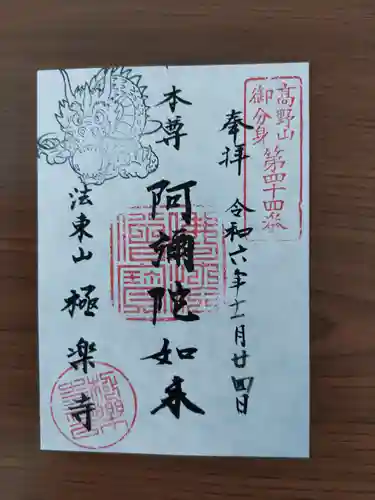 高野山
御分身
第四十四番
奉拝
令和六年十一月廿四日
本尊
阿彌陀如来
法東山
極楽寺